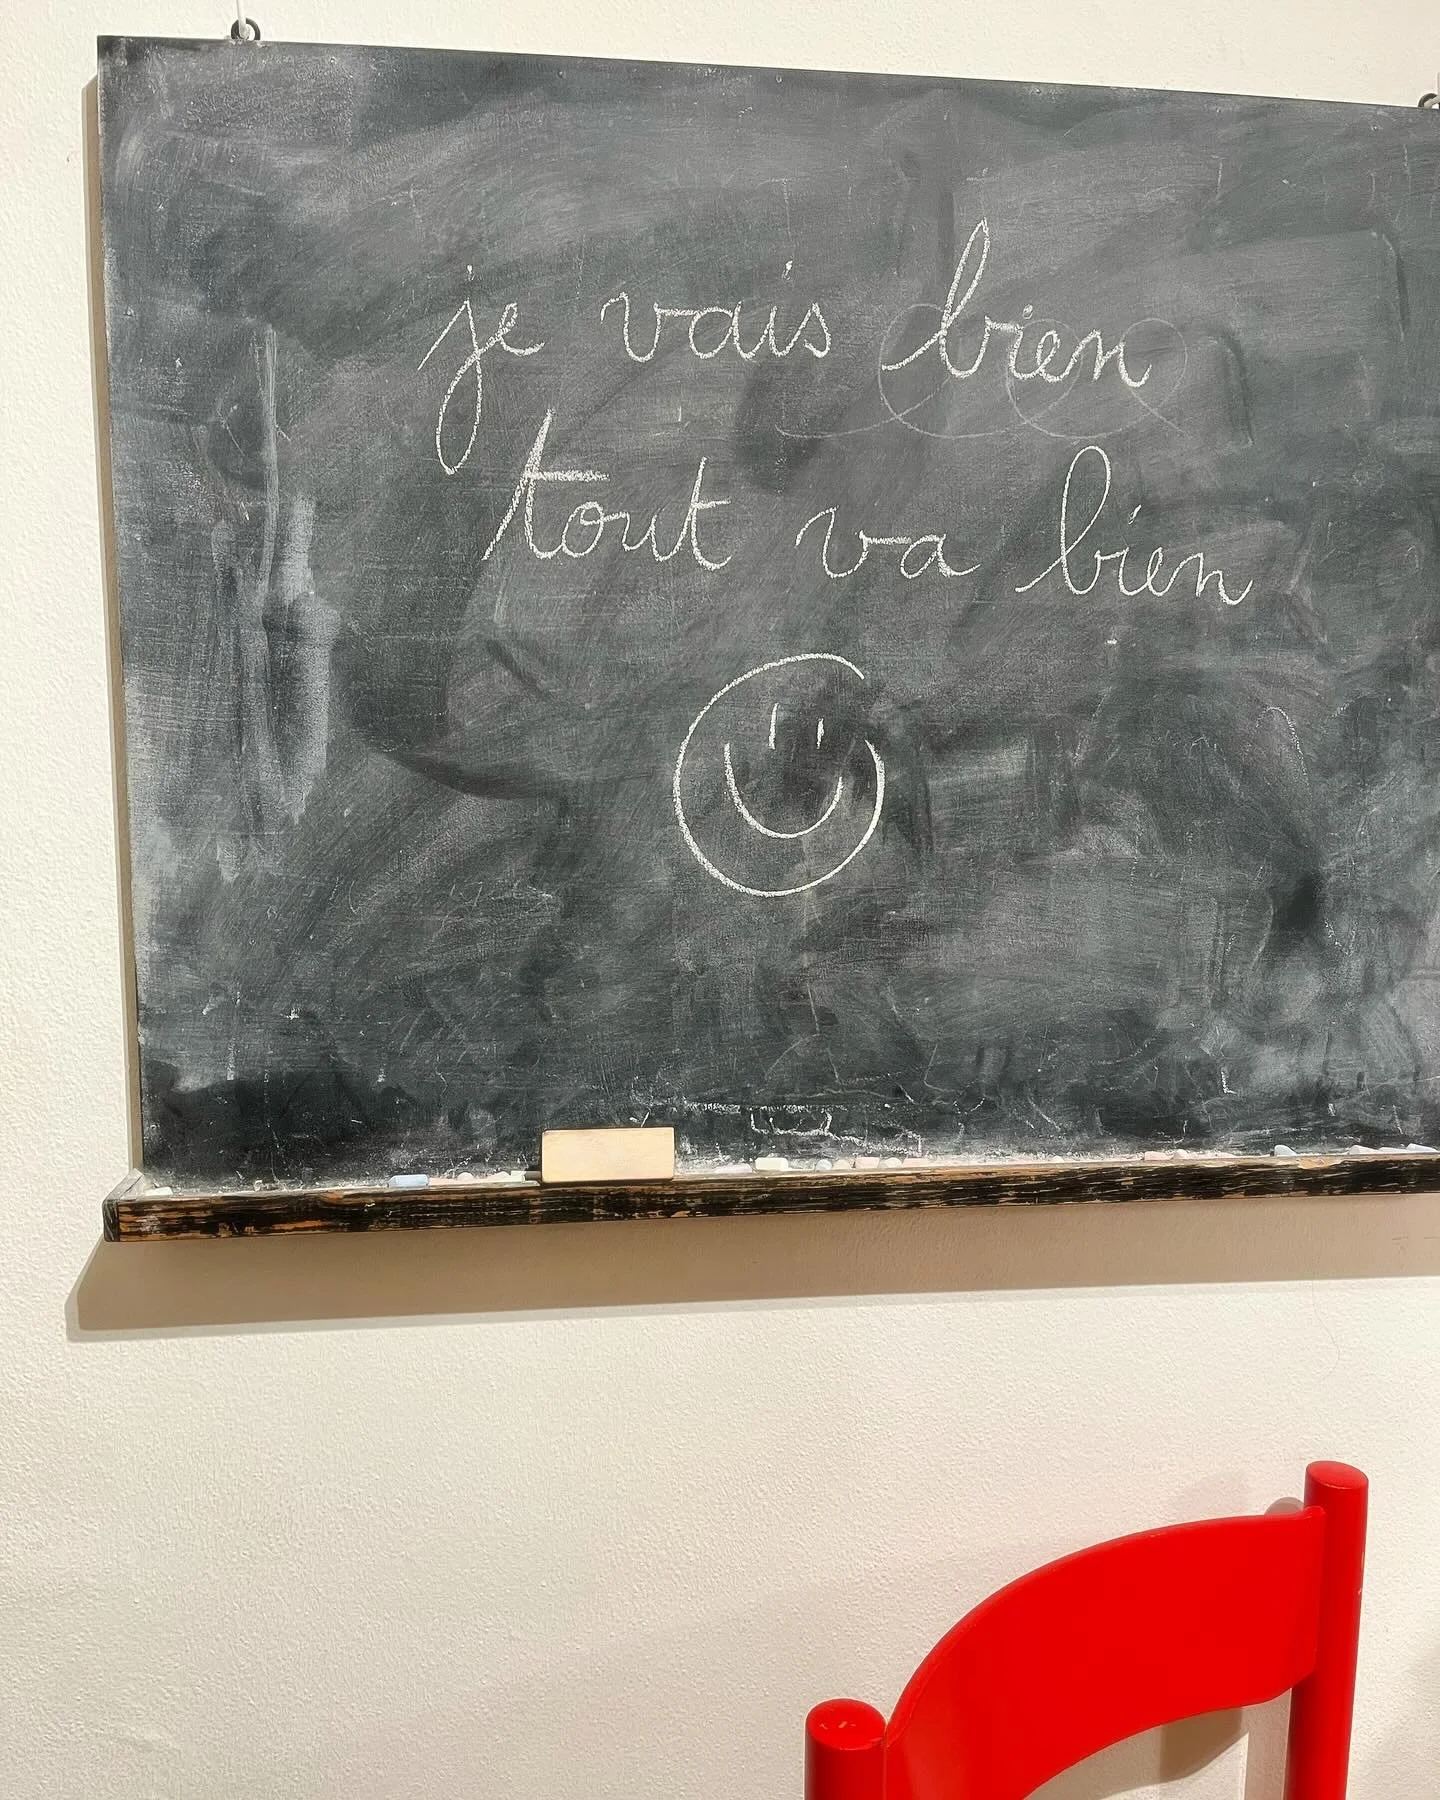 je vais bien
tout va bien